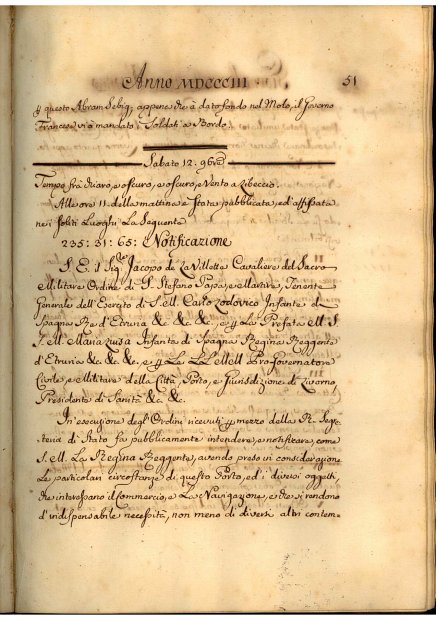 Anno MDCCCIII 51
questo Abram Sebiq, appena che à dato fondo nel Molo, il Governo
Francese vi à mandato i Soldati a Bordo
Sabato 12: 9bre
Tempo frà chiaro, e oscuro, e oscuro, e Vento a Libeccio.
Alle ore 11. della mattina e stata pubblicata, ed affissata
nei soliti Luoghi La Seguente
235: 31: 65: Notificazione
S. E. il Sigr. Jacopo de LaVillette Cavaliere del Sacro
Militare Ordine di S. Stefano Papa, e Martire, Tenente
Generale dell'Esercito di S. M. Carlo Lodovico Infante di
Spagna Re d'Etruria &c. &c. &c. e La Prefata M. S.
S. M. Maria Luisa Infanta di Spagna Regina Reggente
d'Etruria &c. &c. &c. e Le LL. MM. ProGovernatore
Civile, e Militare della Città, Porto, e Giurisdizione di Livorno,
Presidente di Sanità &c. &c.
In esecuzione degl'Ordini ricevuti mezzo della R. Segre-
teria di Stato fa pubblicamente intendere, e notificare, come
S. M. La Regina Reggente, avendo preso in considerazione
Le particolari circostanze di questo Porto, ed i diversi oggetti,
che interessano il Commercio, e La Navigazione, e che si rendono
d'indispensabile necessità, non meno di diversi altri contem-